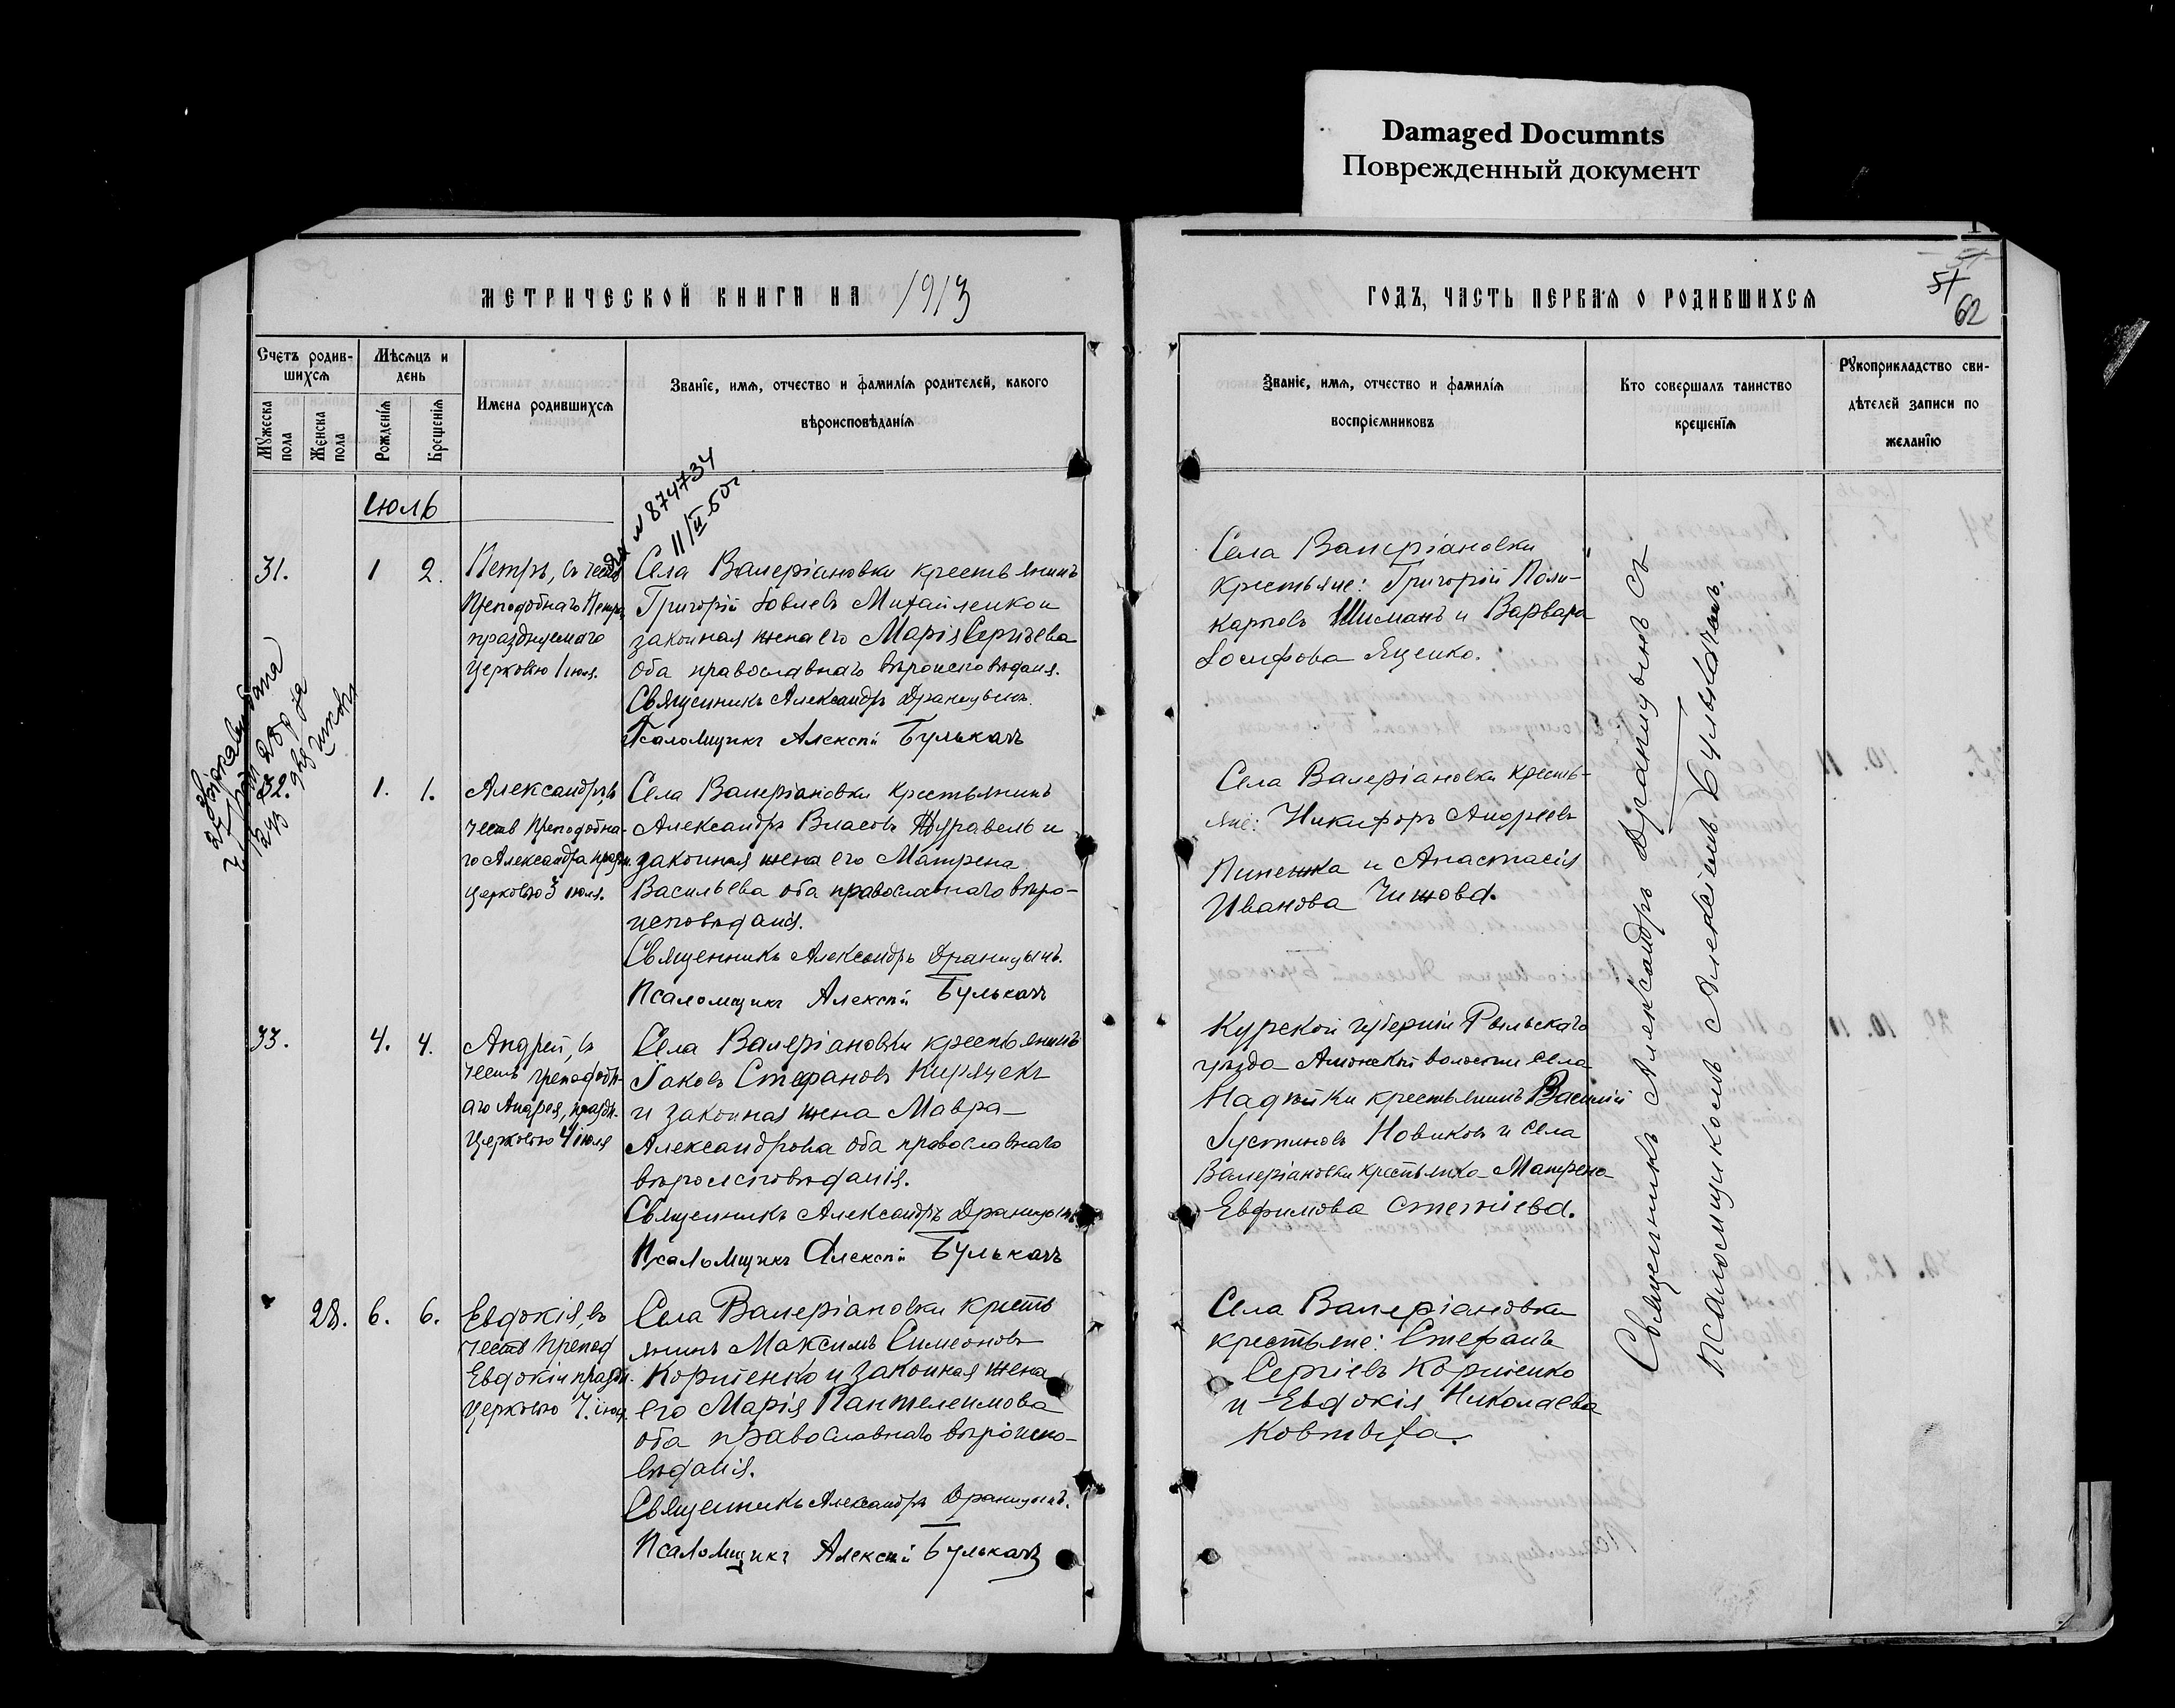 Damaged Documnts
Поврежденный документ
МЕТРИЧЕСКОЙ КНИГИ НА 1913
ГОДЪ, ЧАСТЬ ПЕРВАЯ О РОДИВШИХСЯ
51
62
Счетъ родив-
шихся
Мужеска пола
Женска пола
Мѣсяцъ и
день
Рожденія
Крещенія
Имена родившихся
Званіе, имя, отчество и фамилія родителей, какого
вѣроисповѣданія
Званіе, имя, отчество и фамилія
воспріемниковъ
Кто совершалъ таинство
крещенія
Рукоприкладство сви-
дѣтелей записи по
желанію
Іюль
N 874734
11/II-50г
31.
1
2.
Петръ, въ честь
Преподобнаго Петра,
празднуемаго
Церковью 1 іюля.
Села Валеріановки крестьянинъ
Григорій Іовлевъ Михайленко и
законная жена его Марія Сергѣева
оба православнаго вѣроисповѣданія.
Священникъ Александръ Драницынъ.
Псаломщикъ Алексѣй Булькачъ
Села Валеріановки
крестьяне: Григорій Поли-
карповъ Шиманъ и Варвара
Іосифова Яценко.
32.
1.
1.
Александръ, въ
честь Преподобна-
го Александра праздн.
Церковью 3 іюля.
Села Валеріановки крестьянинъ
Александръ Власовъ Журавель и
законная жена его Матрена
Васильева оба православнаго вѣро-
исповѣданія.
Священникъ Александръ Драницынъ.
Псаломщикъ Алексѣй Булькачъ
Села Валеріановки кресть-
яне: Никифоръ Андреевъ
Пипенка и Анастасія
Иванова Чижова.
33.
4.
4.
Андрей, въ
честь преподобн-
аго Андрея, праздн.
Церковью 4 іюля
Села Валеріановки крестьянинъ
Іаковъ Стефановъ Кирячекъ
и законная жена Мавра
Александрова оба православнаго
вѣроисповѣданія.
Священникъ Александръ Драницынъ
Псаломщикъ Алексѣй Булькачъ
Курской губерніи Рыльскаго
уѣзда Амонской волости села
Надѣйки крестьянинъ Василій
Іустиновъ Новиковъ и села
Валеріановки крестьянка Матрена
Евфимова
28.
6.
6.
Евдокія, въ
честь Препод
Евдокіи праздн.
Церковью 7. іюля.
Села Валеріановки кресть
янинъ Максимъ Симеоновъ
Корніенко и законная жена
его Марія Пантелеимова
оба православнаго вѣроиспо-
вѣданія.
Священникъ Александръ Драницынъ.
Псаломщикъ Алексѣй Булькачъ
Села Валеріановки
крестьяне: Стефанъ
Сергіевъ Корніенко
и Евдокія Николаева
Священникъ Александръ Драницынъ съ
Псаломщикомъ Алексіемъ Булькачемъ.